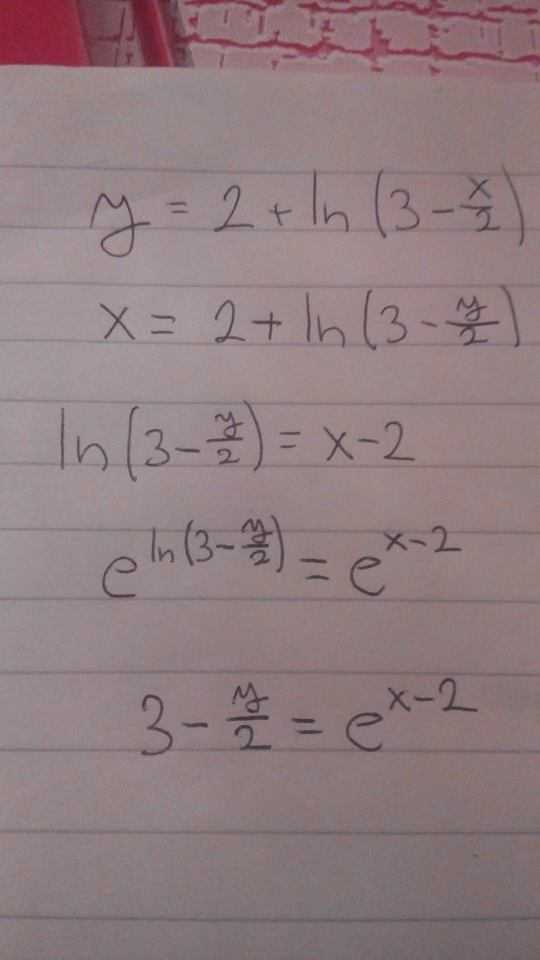 y = 2 + ln (3 - x/2)
x = 2 + ln (3 - y/2)
ln (3 - y/2) = x - 2
e^(ln (3 - y/2)) = e^(x - 2)
3 - y/2 = e^(x - 2)